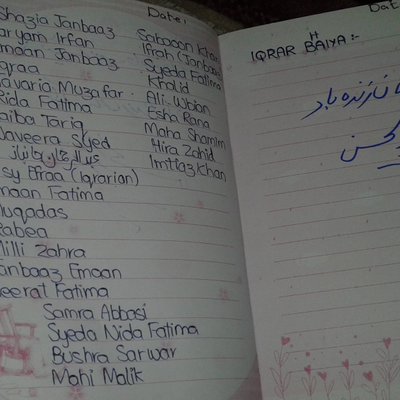 Date:
Shazia Janbaaz
aryam Irfan
maan Janbaaz
qraa
avaria Muzafar.
Rida Fatima
aiba Tariq
Javeera Syed
sy Efraa (Iqrarian)
maan Fatima
uqadas
Rabea
Milli Zahra
Janbaaz Emaan
eerat Fatima
Samra Abbasi
Syeda Nida Fatima
Bushra Sarwar
Mahi Malik
Sabaoon Khan
Ifrah (Janbaaz
Syeda Fatima
Khalid
Ali Woian
Esha Rana
Maha Shamim
Hira Zahid
Imtiaz Khan
Dat
IQRAR BHAIYA :-
زندہ باد